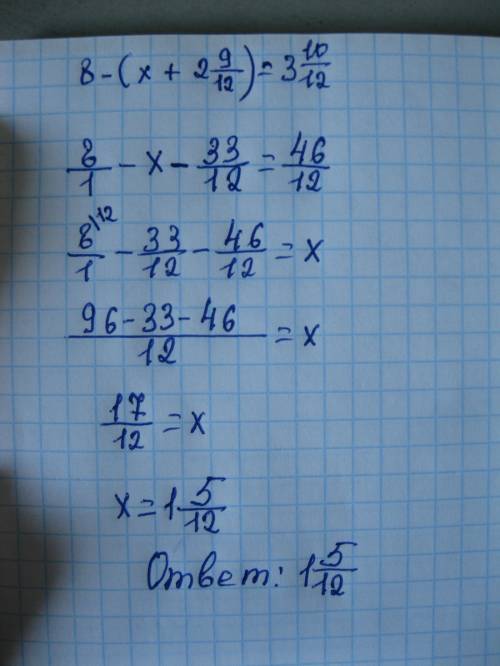 8 - (x + 2 9/12) = 3 10/12
8/1 - x - 33/12 = 46/12
8\12/1 - 33/12 - 46/12 = x
96 - 33 - 46/12 = x
17/12 = x
x = 1 5/12
Ответ: 1 5/12